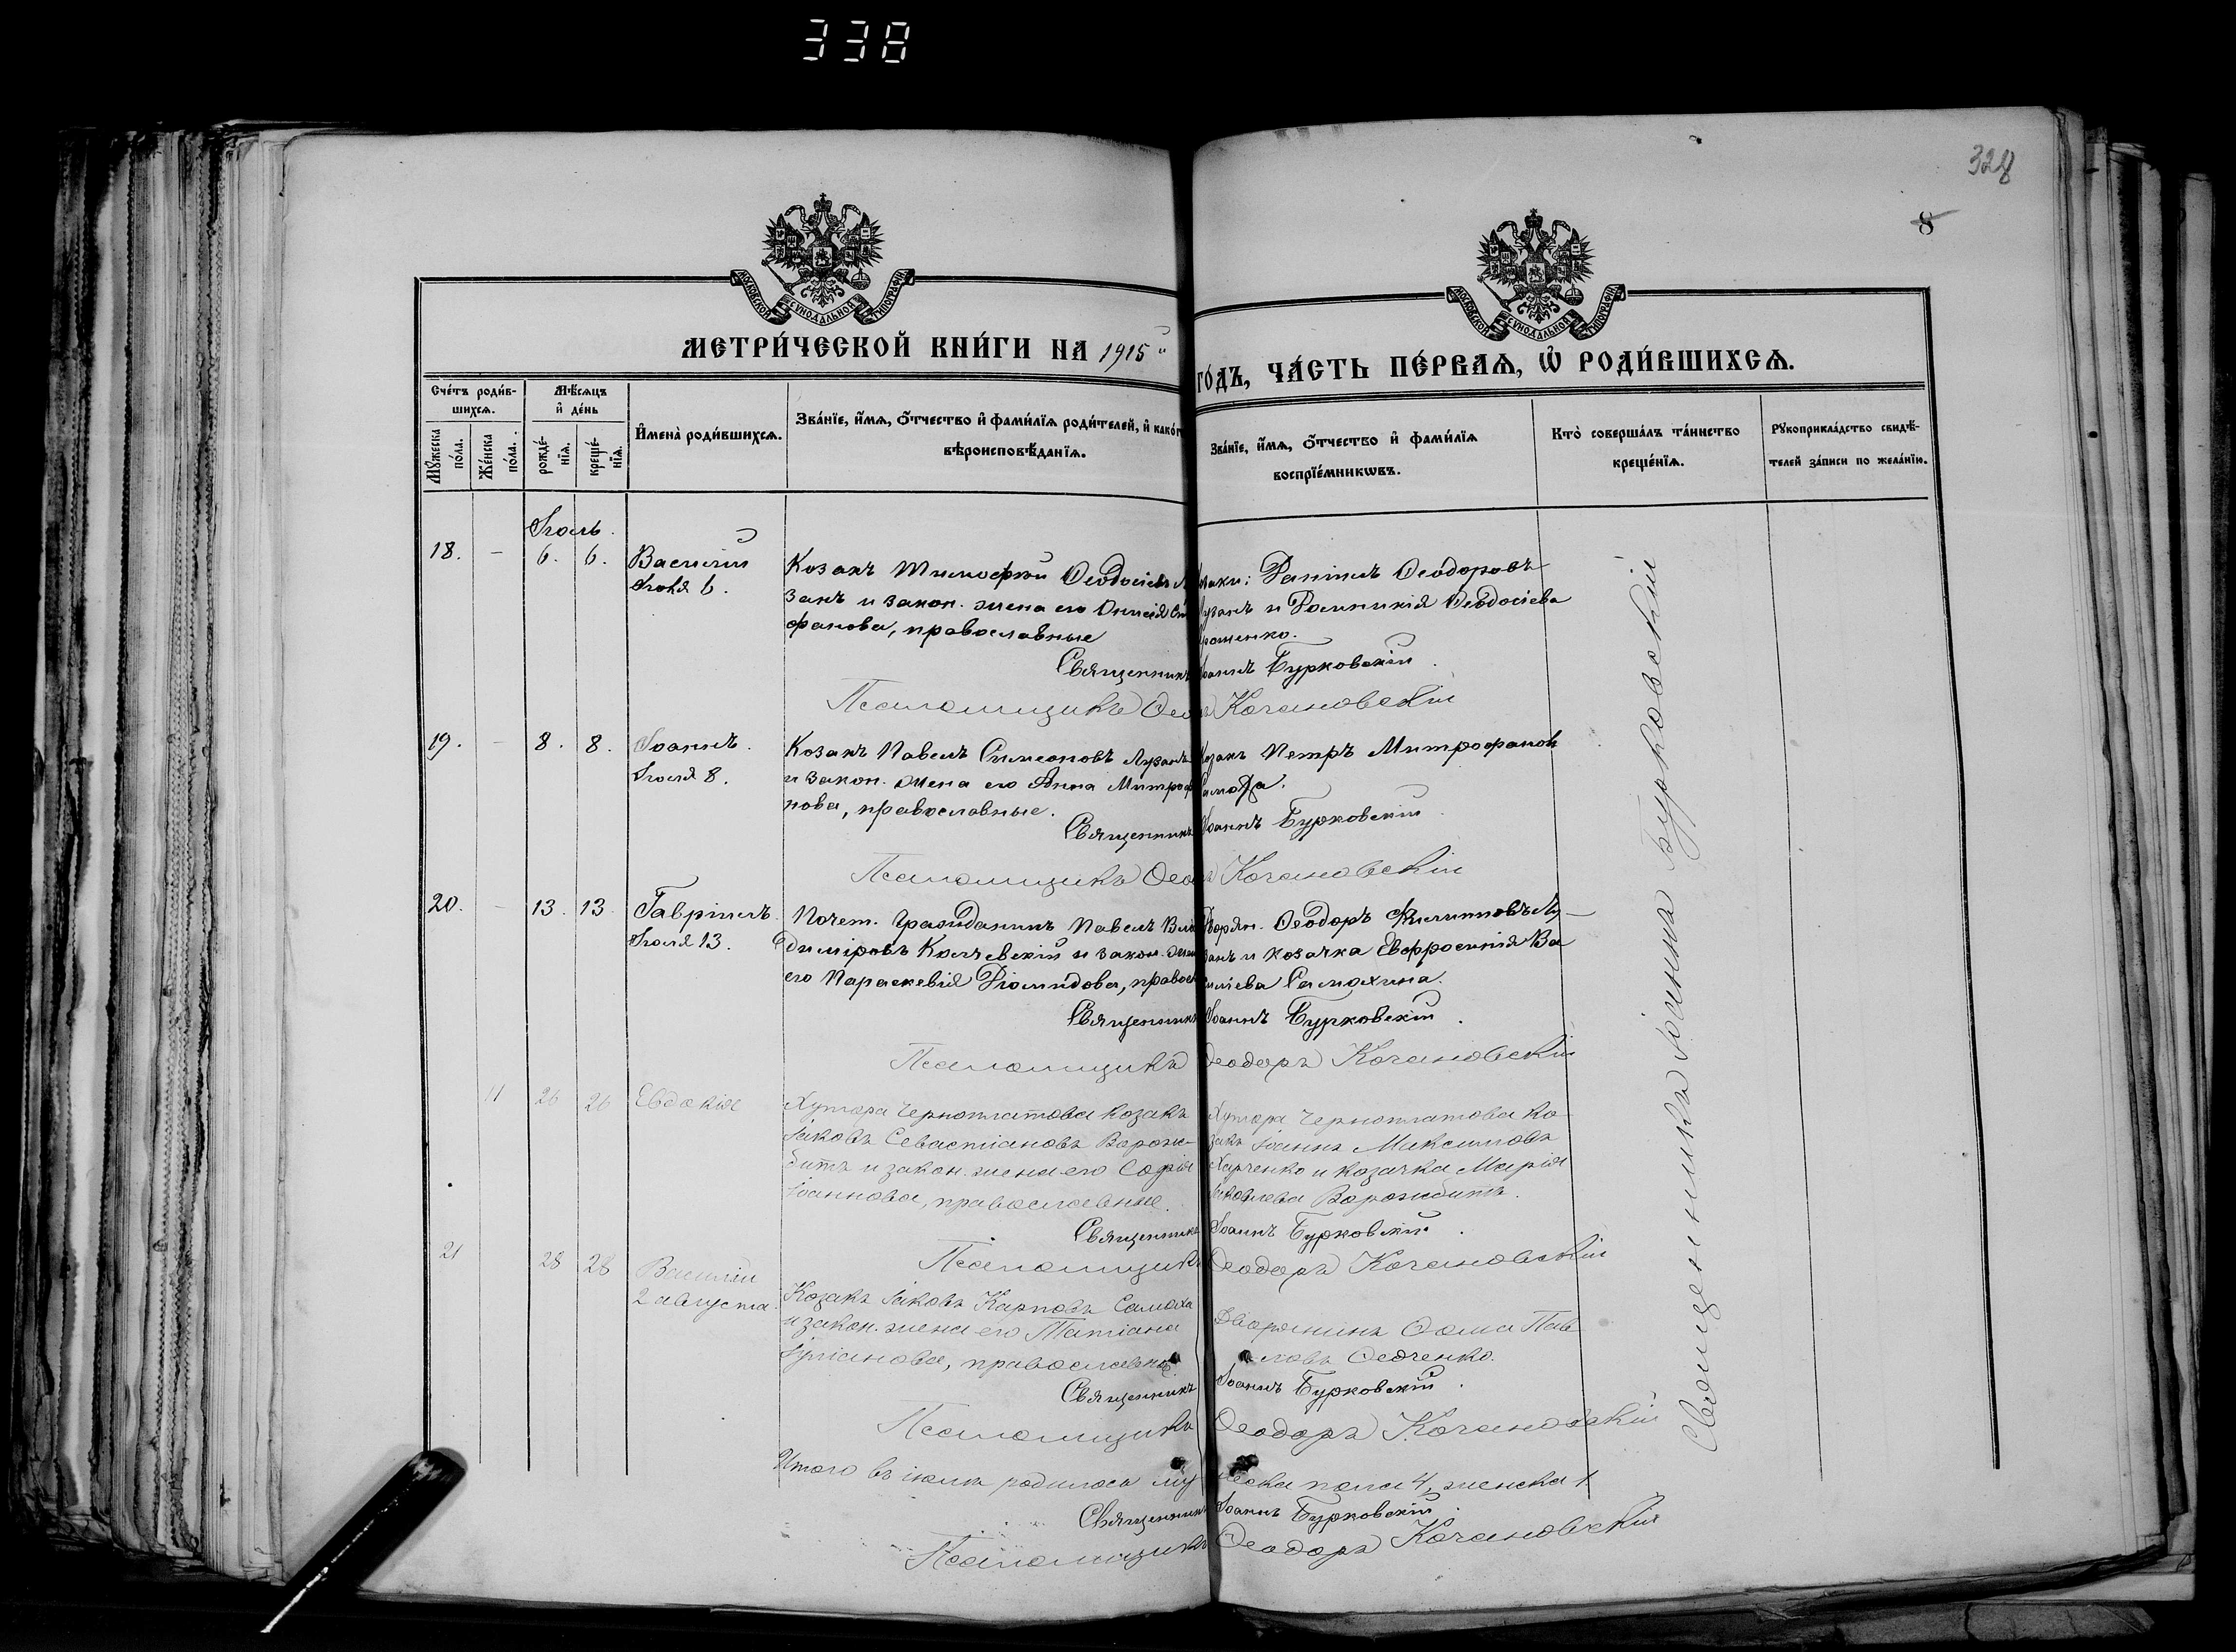 338
328
8
МОСКОВСКОЙ СУНОДАЛЬНОЙ ТИПОГРАФІИ
МОСКОВСКОЙ СУНОДАЛЬНОЙ ТИПОГРАФІИ
МЕТРИ́ЧЕСКОЙ КНИ́ГИ НА 1915й
ГО́ДЪ, ЧА́СТЬ ПЕ́РВАѦ, Ѽ РОДИ́ВШИХСѦ.
Сче́тъ роди́в-
шихсѧ.
Мѣ́сѧцъ
и҆ де́нь
Мꙋ́жеска
по́ла.
Же́нска
по́ла.
рожде́-
нїѧ.
креще́-
нїѧ.
И҆мена̀ роди́вшихсѧ.
Зва́нїе, и҆́мѧ, ѻ҆́тчество и҆ фами́лїѧ роди́телей, и҆ како́г
вѣроисповѣ́данїѧ.
Зва́нїе, и҆́мѧ, ѻ҆́тчество и҆ фами́лїѧ
воспрїе́мникѡвъ.
Кто̀ соверша́лъ та́инство
креще́нїѧ.
Рꙋкоприкла́дство свидѣ́-
телей за́писи по жела́нїю.
Іюль.
18. – 6. 6. Василій
Іюля 6.
Козакъ Тимофей Ѳеодосіевъ
занъ и закон. жена его Онисія
фанова, православные
Козаки: Даніилъ Ѳеодоровъ
Лузанъ и Домникія Ѳеодосіева
Священникъ Іоаннъ Бурковскій.
Псаломщикъ Ѳеодоръ Кочановскій
19. – 8. 8. Іоаннъ.
Іюля 8.
Козакъ Павелъ Симеоновъ Лузанъ
и закон. жена его Анна Митроф
нова, православные.
Козакъ Петръ Митрофанов
Священникъ Іоаннъ Бурковскій.
Псаломщикъ Ѳеодоръ Кочановскій
20. – 13. 13. Гавріилъ.
Іюля 13.
Почет. Гражданинъ Павелъ Вла
диміровъ Колчевскій и закон. жена
его Параскевія Діомидова, правосл
Дворян. Ѳеодоръ Филипповъ Лу-
занъ и козачка Евфросинія Ва
силіева Самохина.
Священникъ Іоаннъ Бурковскій.
Псаломщикъ Ѳеодоръ Кочановскій
11 26 26 Евдокія
Хутора Черноплатова козакъ
Іаковъ Севастіановъ Ворож-
битъ и закон. жена его Софія
Іоаннова, православные.
Хутора Черноплатова ко-
закъ Іоаннъ Максимовъ
Харченко и козачка Марія
Іаковлева Ворожбитъ.
Священникъ Іоаннъ Бурковскій.
Псаломщикъ Ѳеодоръ Кочановскій
21 28 28 Василій
2 августа.
Козакъ Іаковъ Карповъ Самоха
и закон. жена его Татіана
Іуліанова, православные.
Дворянинъ Ѳома Пав
ловъ Федченко.
Священникъ Іоаннъ Бурковскій.
Псаломщикъ Ѳеодоръ Кочановскій
Итого въ іюлѣ родилось мужеска пола 4, женска 1
Священникъ Іоаннъ Бурковскій.
Псаломщикъ Ѳеодоръ Кочановскій
Священникъ Іоаннъ Бурковскій